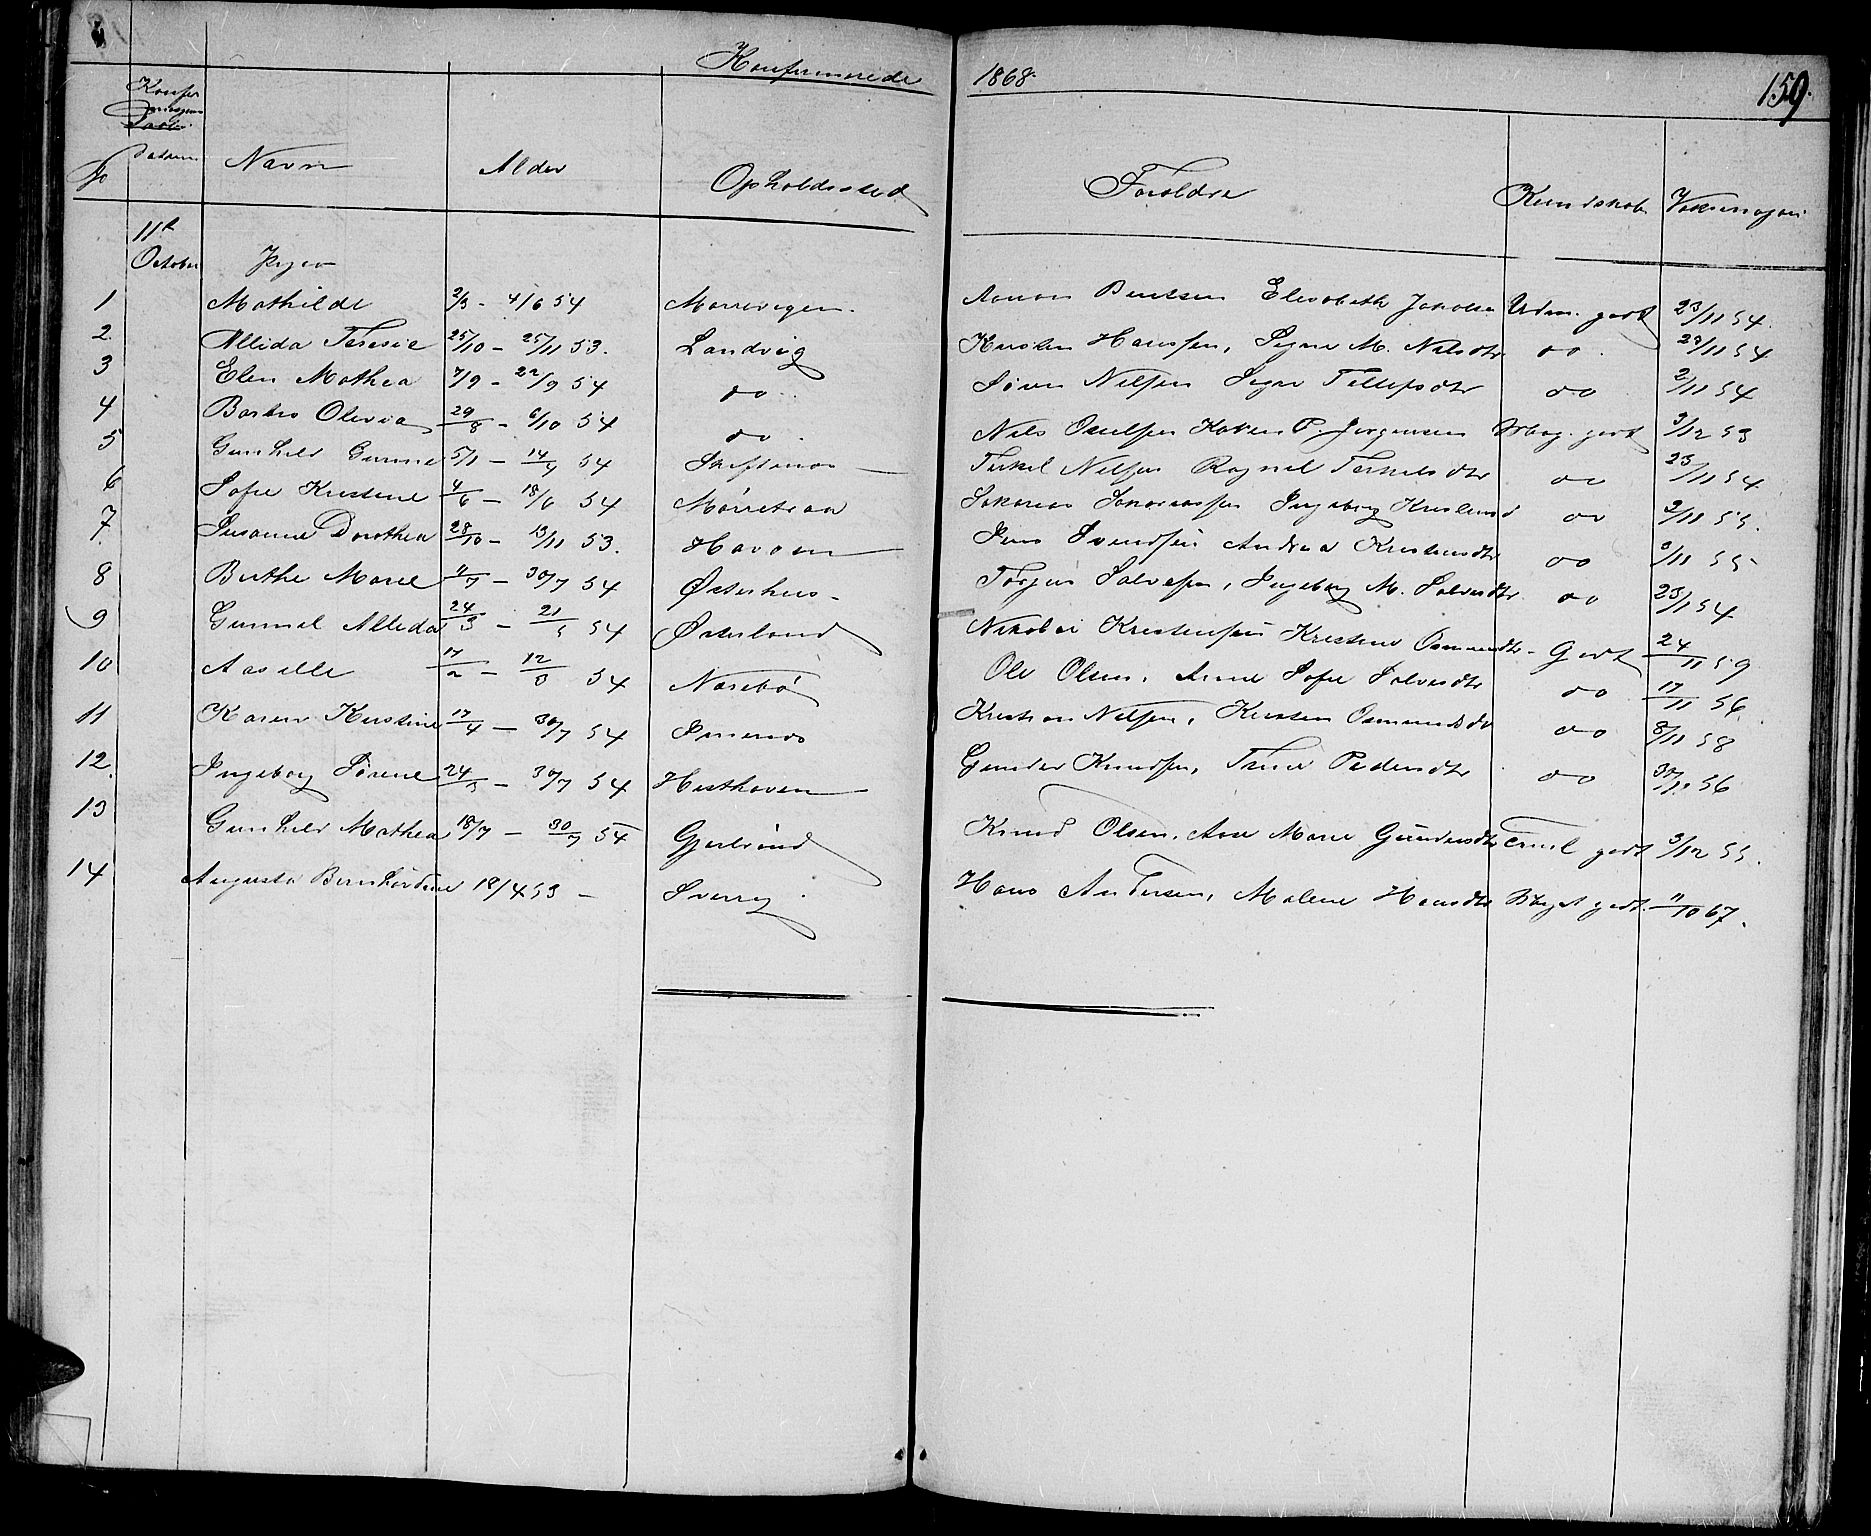 Konfirmerede 1868. 159.
No Datum Navn Alder Opholdssted Foreldre Kundskab Vaksinasjon
11te
October Piger
1 Mathilde 2/3 - 4/6 54 Morrevigen. Bentsen Elisabeth Udm. godt 23/11 54.
2. Allida Teresie 25/10 - 25/11 53. Landvig Hanssen, Signe M. Nilsdtr do. 23/11 54
3 Elen Mathea 7/9 - 22/9 54 do. Søren Nilsen Signe Tellefsdtr do 2/11 54
4 Barbro Olivia 29/8 - 6/10 54 do. Nils Karen P. Jørgensen Mg. godt 3/12 53
5 Gunhild Gurine 5/1 - 14/4 54 Terkel Nilsen Ragnil Terkelsdtr do 23/11 54
6 Sofie Kristine 4/6 - 18/6 54 Mørretraa Sakarias Sakariassen Ingeborg do 2/11 55.
7. Susanne Dorothea 28/10 - 13/11 53. Havaasen Jens Svendsen Andrea Kristensdtr do /11 55
8 Berthe Marie 11/7 - 30/7 54 Østerhus Torjus Salvesen, Ingeborg M. Salvesdtr do 23/11 54
9 Gunnil Allida 24/3 - 21/5 54 Østerland Nikolai Kristensen Kristine Osmundsdtr. Godt 24/11 59
10 Aasille 17/2 - 12/3 54 Narebø Ole Olsen, Anne Sofie Salvesdtr do 17/11 56.
11 Karen Kirstine 17/4 - 30/7 54 Kristian Nilsen, Kirsten Osmundsdtr do 8/11 58
12. Ingeborg Sørine 24/5 - 30/7 54 Hesthaven Gunder Knudsen, Trine Pedersdtr do 30/11 56
13 Gunhild Mathea 18/7 - 30/7 54 Gjerbrønd Knud Olsen, Ane Marie Gundersdtr Teml. godt 3/12 55.
14 Augusta Bernhardine 18/4 53 - Sverrig Hans Andersen, Malene Hansdtr Meget godt. 11/10 67.